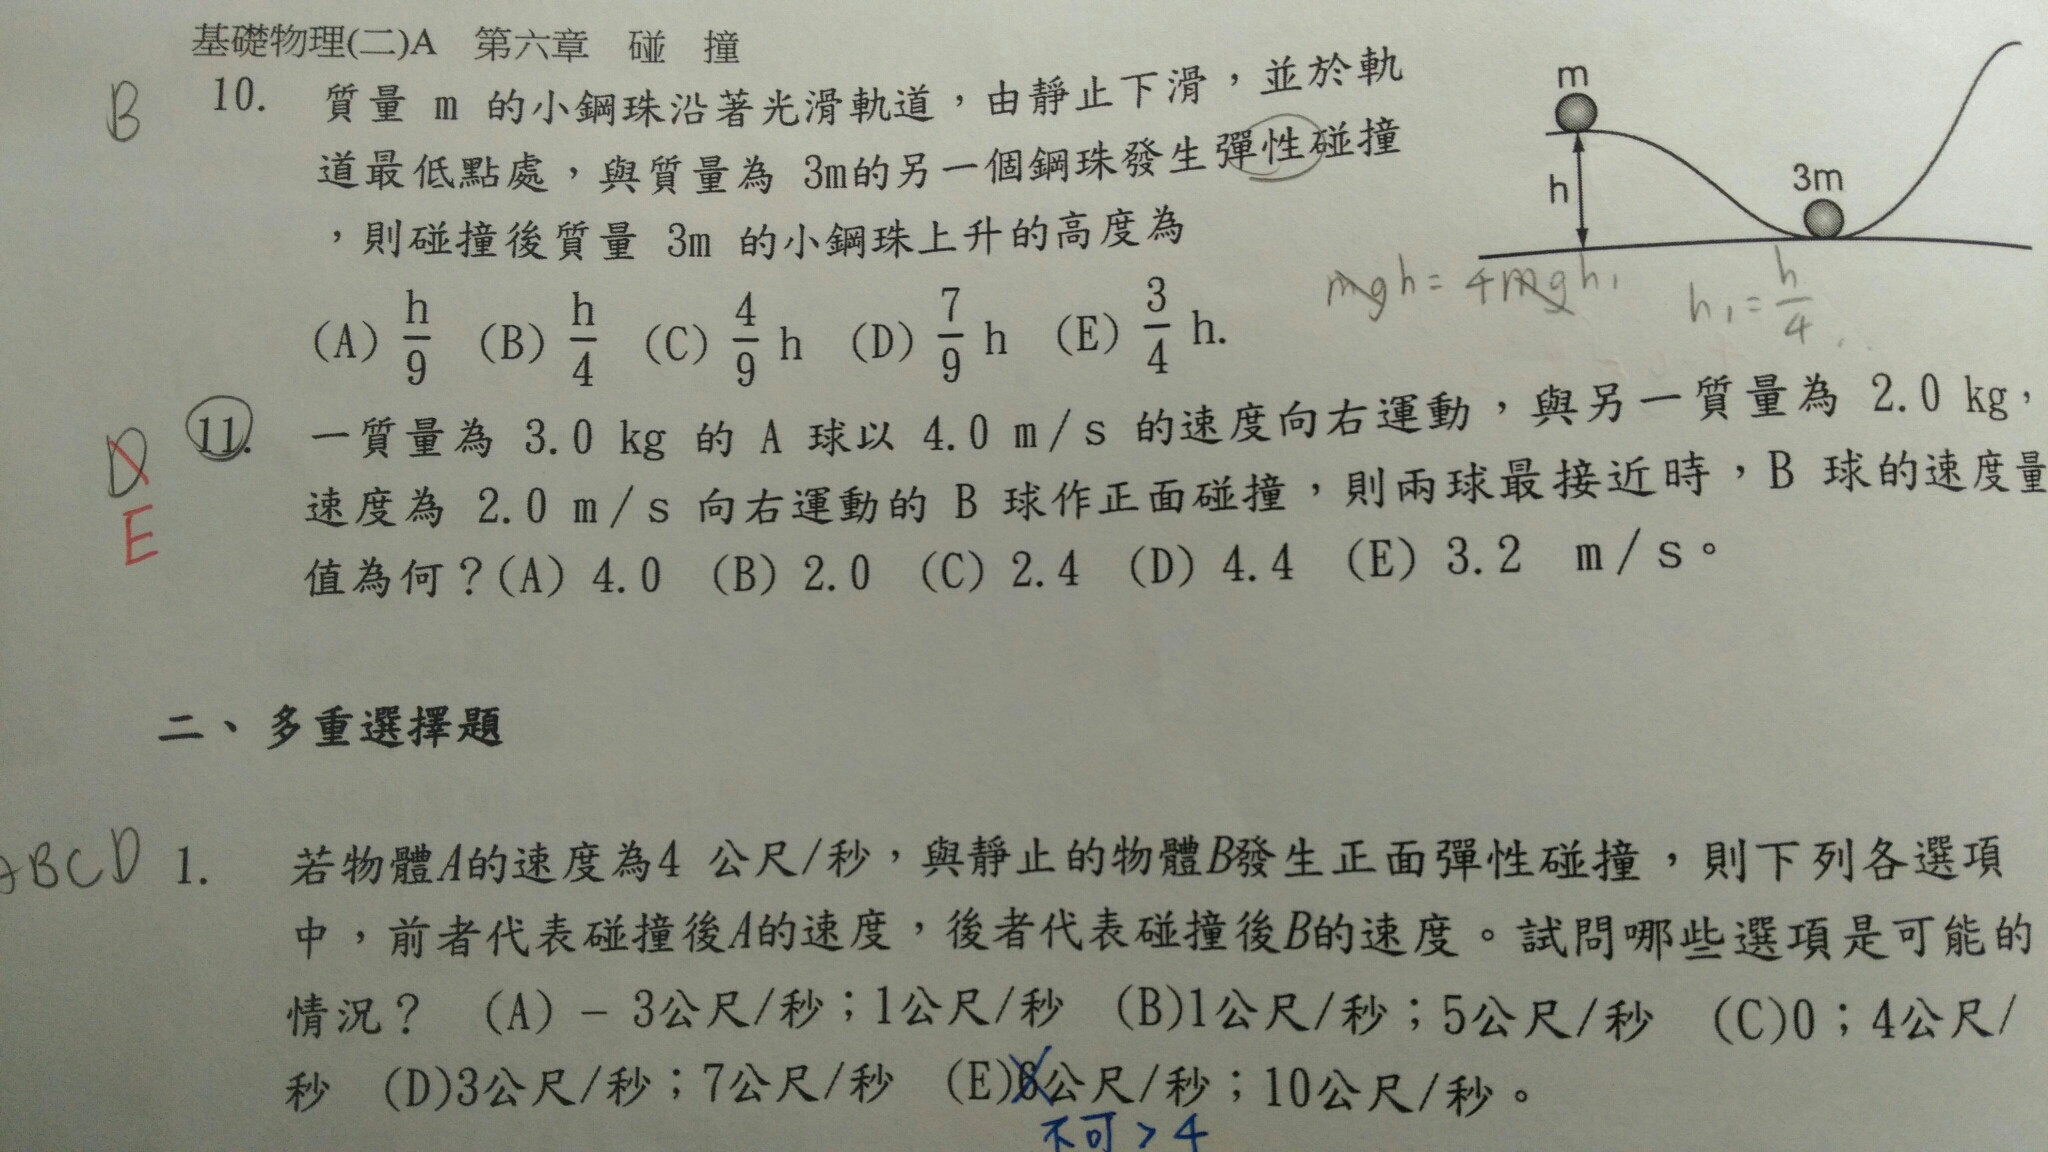 基礎物理(二)A 第六章 碰 撞
B 10. 質量 m 的小鋼珠沿著光滑軌道，由靜止下滑，並於軌
道最低點處，與質量為 3m的另一個鋼珠發生彈性碰撞
，則碰撞後質量 3m 的小鋼珠上升的高度為
m
h
3m
mgh = 4mgh₁ h₁ = h/4
(A) h/9 (B) h/4 (C) 4/9 h (D) 7/9 h (E) 3/4 h.
D 11. 一質量為 3.0 kg 的 A 球以 4.0 m/s 的速度向右運動，與另一質量為 2.0 kg，
E 速度為 2.0 m/s 向右運動的 B 球作正面碰撞，則兩球最接近時，B 球的速度量
值為何？(A) 4.0 (B) 2.0 (C) 2.4 (D) 4.4 (E) 3.2 m/s。
二、多重選擇題
ABCD 1. 若物體A的速度為4 公尺/秒，與靜止的物體B發生正面彈性碰撞，則下列各選項
中，前者代表碰撞後A的速度，後者代表碰撞後B的速度。試問哪些選項是可能的
情況？ (A) －3公尺/秒；1公尺/秒 (B)1公尺/秒；5公尺/秒 (C)0；4公尺/
秒 (D)3公尺/秒；7公尺/秒 (E)6公尺/秒；10公尺/秒。
不可 > 4